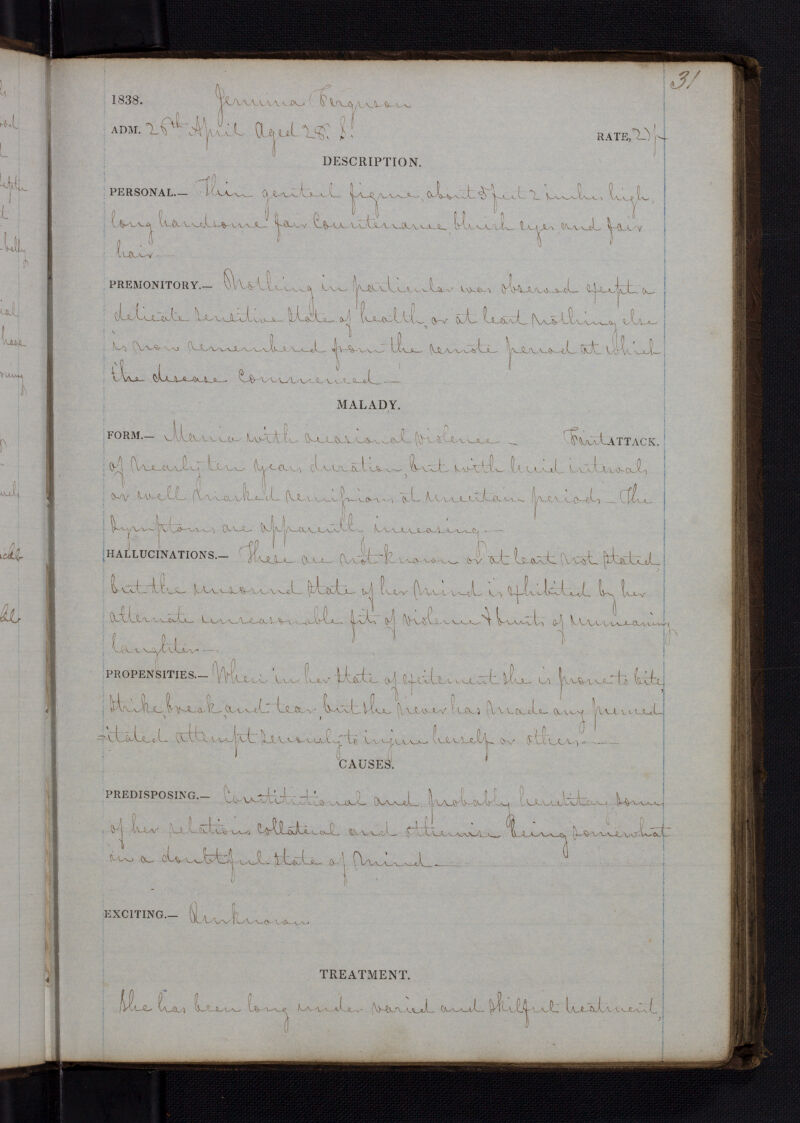 31
1838. Jemima Ferguson
ADM. 28th April Aged 28. S. RATE,
DESCRIPTION.
PERSONAL.— Thin genteel figure, about 5 feet 2 inches high,
long handsome fair Countenance, bluish eyes and fair
hair—
PREMONITORY.— Nothing in particular was observed except a
delicate sensitive state of health, or at least nothing else
is now remembered from the remote period at which
the disease Commenced—
MALADY.
FORM.— Mania with occasional violence — First ATTACK.
of nearly ten years duration, but with lucid intervals,
or well marked remissions at uncertain periods — The
Symptoms are apparently increasing.—
HALLUCINATIONS.— These are not known or at least not stated,
but the unsound state of her mind is exhibited by her
alternate unreasonable fits of violence & bursts of unmeaning
laughter—
PROPENSITIES.— When in her state of excitement she is prone to bite,
strike, break, and tear, but she never has made any premed
-itated attempt seriously to injure herself or others.—
CAUSES.
PREDISPOSING.— Constitutional and probably hereditary, some
of her relations collateral and otherwise being somewhat
in a doubtful state of mind.—
EXCITING.— Unknown
TREATMENT.
She has been long under varied and skilful treatment,